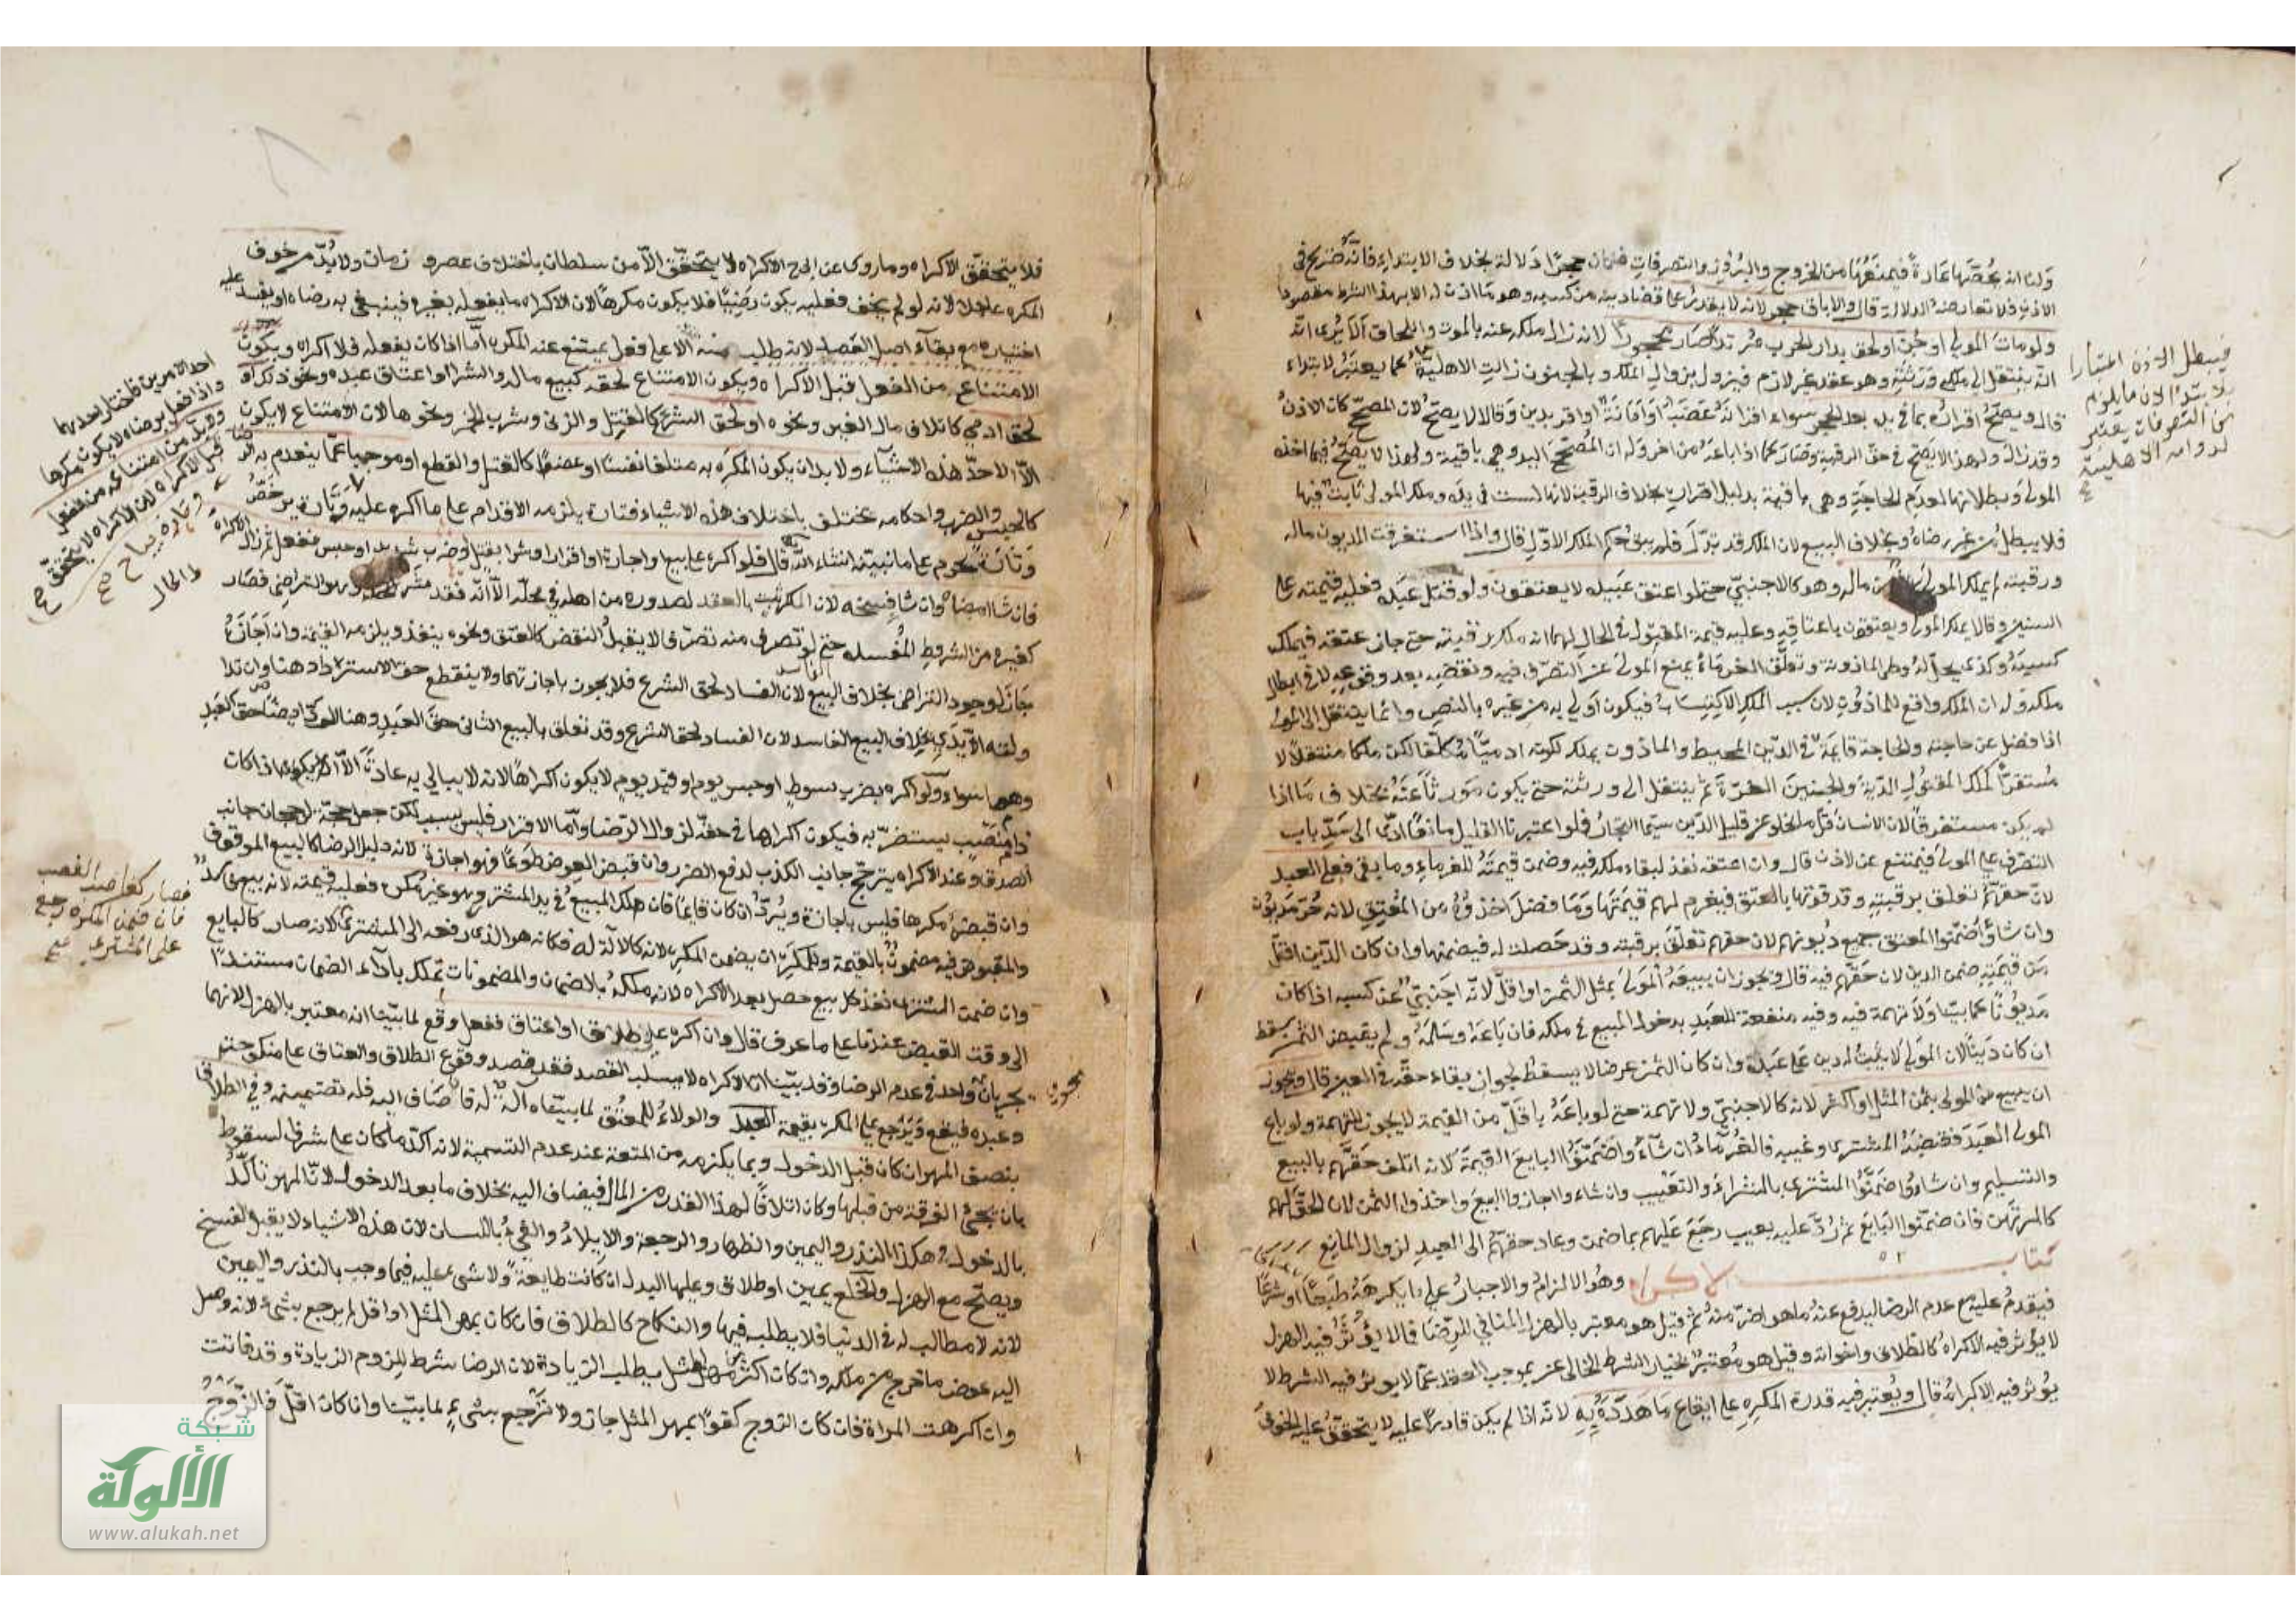 ولنا انه يحصنها عادة فيمنعها من الخروج والبروز والتصرفات فكان حجرا دلالة بخلاف الابتداء فانه صريح في
الاذن فلا تعارضه الدلالة قال والاباق حجر لانه لا يقدر على قضاء دينه من كسبه وهو ما اذن له الا بهذا الشرط مقصودا
ولو مات المولى او جن او لحق بدار الحرب مرتدا صار محجورا لانه زال ملكه عنه بالموت واللحاق الا يرى انه
انه ينتقل الى ملك ورثته وهو عقد غير لازم فيزول بزوال الملك وبالجنون زالت الاهلية كما يعتبر لابتداء
قال ويصح اقراره بما في يده بعد الحجر سواء اقر انه غصب او امانة او اقر بدين وقالا لا يصح لان المصحح كان الاذن
وقد زال ولهذا لا يصح في حق الرقبة وصار كما اذا باعه من اخر وله ان المصحح اليد وهي باقية ولهذا لا يصح فيما اخذه
المولى وبطلانها لعدم الحاجة وهي باقية بدليل اقراره بخلاف الرقبة لانها ليست في يده وملك المولى ثابت فيها
فلا يبطل من غير رضاه وبخلاف البيع لان الملك قد تبدل فلم يبق حكم الملك الاول قال واذا استغرقت الديون ماله
ورقبته لم يملك المولى من ماله وهو كالاجنبي حتى لو اعتق عبيده لا يعتقون ولو قتل عبده فعليه قيمته في
السنين وقالا يملك المولى ويعتقون باعتاقه وعليه قيمة المقتول في الحال لهما انه ملك رقبته حتى جاز عتقه فيملك
كسبه وكذى يحل له وطى الماذونة وتعلق الغرماء يمنع المولى عن التصرف فيه ونقضه بعد وقوعه لا في ابطال
ملكه وله ان الملك واقع للماذون لان سبب الملك الاكتساب فيكون اولى به من غيره بالنص وانما ينتقل الى المولى
اذا فضل عن حاجته والحاجة قايمة في الدين المحيط والماذون يملك لكونه ادميا مكلفا لكن ملكا منتقلا لا
مستقرا كملك المقتول الدية والجنين الغرة ثم ينتقل الى ورثته حتى يكون موروثا عنه بخلاف ما اذا
لم يكن مستغرقا لان الانسان قل ما يخلو عن قليل الدين سيما التجار فلو اعتبرنا القليل مانعا ادى الى سد باب
التصرف على المولى فيمتنع عن الاذن قال وان اعتقه نفذ لبقاء ملكه فيه وضمن قيمته للغرماء وما بقي فعلى العبد
لان حقهم تعلق برقبته وقد فوتها بالعتق فيغرم لهم قيمتها وما فضل اخذوه من المعتق لانه حر مديون
وان شاؤا ضمنوا المعتق جميع ديونهم لان حقهم تعلق برقبته وقد حصلت له فيضمنها وان كان الدين اقل
من قيمته ضمن الدين لان حقهم فيه قال ويجوز ان يبيعه المولى بمثل الثمن او اقل لانه اجنبي عن كسبه اذا كان
مديونا كما بينا ولا تهمة فيه وفيه منفعة للعبد بدخول المبيع في ملكه فان باعه وسلمه ولم يقبض الثمن سقط
ان كان دينا لان المولى لا يثبت له دين على عبده وان كان الثمن عرضا لا يسقط لجواز بقاء حقه في العين قال ويجوز
ان يبيع من المولى بمثل المثل او اكثر لانه كالاجنبي ولا تهمة حتى لو باعه باقل من القيمة لا يجوز للتهمة ولو باع
المولى العبد فقبضه المشترى وغيبه فالغرماء ان شاءوا ضمنوا البايع القيمة لانه اتلف حقهم بالبيع
والتسليم وان شاءوا ضمنوا المشترى بالشراء والتغييب وان شاء وا اجازوا البيع واخذوا الثمن لان الحق لهم
كالمرتهن فان ضمنوا البايع ثم رد عليه بعيب رجع عليهم بما ضمن وعاد حقهم الى العبد لزوال المانع
كتاب الاكراه وهو الالزام والاجبار على ما يكرهه طبعا او شرعا
فيقدم عليه مع عدم الرضا ليدفع عنه ما هو اضر منه ثم قيل هو معتبر بالهزل المنافي للرضا فما لا يؤثر فيه الهزل
لا يؤثر فيه الاكراه كالطلاق واخواته وقيل هو معتبر بخيار الشرط الخالى عن موجب العقد فما لا يوثر فيه الشرط لا
يوثر فيه الاكراه قال ويعتبر فيه قدرة المكره على ايقاع ما هدده به لانه اذا لم يكن قادرا عليه لا يتحقق عليه الخوف
فيبطل الاذن اعتبارا
بالابتداء لان ما يلزم
من التصرفات يعتبر
لدوامه الاهلية
صح
فلا يتحقق الاكراه وما روى عن ابي ح الاكراه لا يتحقق الا من سلطان باختلاف عصر و زمان ولا بد من خوف
المكره عاجلا لانه لو لم يخف فعليه يكون رضيا فلا يكون مكرها لان الاكراه ما يفعله بغيره فينتفي به رضاه او يفسد عليه
اختياره مع بقآء اصل القصد لانه طلب منه الا على فعل يمتنع عنه المكره اما اذا كان يفعله فلا اكراه ويكون
الامتناع من الفعل قبل الاكراه ويكون الامتناع لحقه كبيع ماله والشرا او اعتاق عبده ونحو ذلك او
لحق ادمي كاتلاف مال الغير ونحوه او لحق الشرع كالقتل والزنى وشرب الخمر ونحوها لان الامتناع لا يكون
الا لاحد هذه الاشياء ولا بد ان يكون المكره به متلفا نفسا او عضوا كالقتل والقطع او موجبا غما ينعدم به الرضا
كالحبس والضرب واحكامه تختلف باختلاف هذه الاشياء فتارة يلزمه الاقدام على ما اكره عليه وتارة يرخص
وتارة يحرم على ما نبينه انشاء الله قال فلو اكره على بيع او اجارة او اقرار او شرا بقتل او ضرب شديد او حبس ففعل ثم زال الاكراه
فان شا امضاه وان شا فسخه لان المكره يثبت بالعقد لصدوره من اهله في محله الا انه فقد شرط وهو التراضى فصار
كغيره من الشروط المفسده حتى لو تصرف منه تصرفا لا يقبل النقض كالعتق ونحوه ينفذ ويلزمه القيمة وان اجازه
جاز لوجود التراضى بخلاف البيع الفاسد لان الفساد لحق الشرع فلا يجوز باجازتهما ولا ينقطع حق الاسترداد هنا وان تدا
ولته الايدى بخلاف البيع الفاسد لان الفساد لحق الشرع وقد تعلق بالبيع الثانى حق العبد وهنا الرد ايضا حق العبد
وهما سواء ولو اكره بضرب سوط او حبس يوم او قيد يوم لا يكون اكراها لانه لا يبالى به عادة الا ان يكون اذا كان
ذا منصب يستضر به فيكون اكراها في حقه لزوال الرضا واما الاقرار فليس بسبب لكن جعل حجة لرجحان جانب
الصدق وعند الاكراه يترجح جانب الكذب لدفع الضرر وان قبض العوض طوعا فهو اجازة لانه دليل الرضا كالبيع الموقوف
وان قبضه مكرها فليس باجازة ويرد ان كان قايما فان هلك المبيع في يد المشترى وهو غير مكره فعليه قيمته لانه بيع فاسد
والمقبوض فيه مضمون بالقيمة وللمكره ان يضمن المكره لانه كالالة له فكانه هو الذى دفعه الى المشترى لانه صار كالبايع
وان ضمن المشترى نفذ كل بيع حصل بعد الاكراه لانه ملكه بالضمان والمضمونات تملك بآداء الضمان مستندا
الى وقت القبض عندنا على ما عرف قال وان اكره على طلاق او اعتاق ففعل وقع لما بينا انه معتبر بالهزل لانهما
يجريان واحد في عدم الرضا وقد بينا ان الاكراه لا يسلب القصد فقد قصد وقوع الطلاق والعتاق على منكوحته
وعبده فيقع ويرجع على المكره بقيمة العبد والولاء للمعتق لما بيناه آلة له فاضاف اليه فله تضمينه وفي الطلاق
بنصف المهر ان كان قبل الدخول وبما يلزمه من المتعة عند عدم التسمية لانه اكد ما كان على شرف السقوط
بان تجئ الفرقة من قبلها وكان اتلافا لهذا القدر من المال فيضاف اليه بخلاف ما بعد الدخول لان المهر تاكد
بالدخول وهكذا النذر واليمين والظهار والرجعة والايلاء والفئ باللسان لان هذه الاشياء لا يقبل الفسخ
ويصح مع الهزل والخلع يمين او طلاق وعليها البدل ان كانت طايعة ولا شئ عليه فيما وجب بالنذر واليمين
لانه لا مطالب له في الدنيا فلا يطلب فيها والنكاح كالطلاق فان كان بمهر المثل او اقل لم يرجع بشئ لانه وصل
اليه عوض ما خرج من ملكه وان كان اكثر من مهر المثل يبطل الزيادة لان الرضا شرط للزوم الزيادة وقد فاتت
وان اكرهت المراة فان كان الزوج كفوا بمهر المثل جاز ولا ترجع بشئ لما بينا وان كان اقل فالزوج
احد الامرين فاختار احدهما
واذا فعل برضاه لا يكون مكرها
ولا بد من امتناعه من الفعل
قبل الاكراه لان الاكراه لا يتحقق صح
وتارة يباح صح
والحال
فصار كغاصب الغصب
فان ضمن المكره رجع
على المشترى صح
شبكة
الألوكة
www.alukah.net